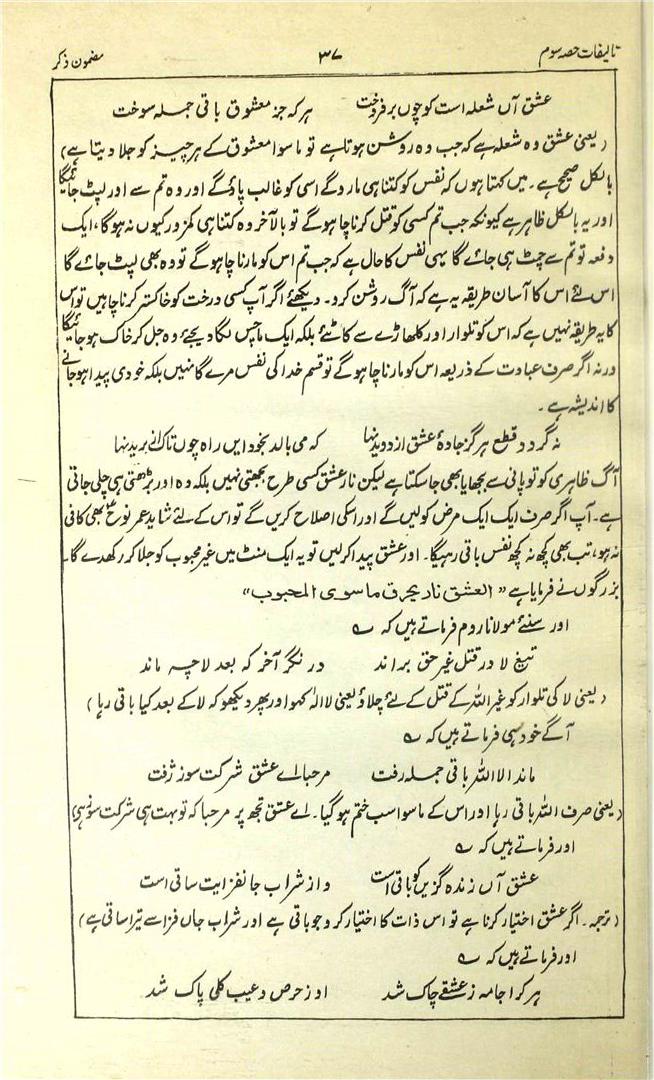 تالیفات حصہ سوم ۳۷ مضمون ذکر
عشق آں شعلہ است کو چوں بر فروخت ہر کہ جز معشوق باقی جملہ سوخت
( یعنی عشق وہ شعلہ ہے کہ جب وہ روشن ہوتا ہے تو ماسوا معشوق کے ہر چیز کو جلا دیتا ہے)
بالکل صحیح ہے۔ میں کہتا ہوں کہ نفس کو کتنا ہی مارو گے اسی کو غالب پاؤ گے اور وہ تم سے اور لپٹ جائیگا
اور یہ بالکل ظاہر ہے کیونکہ جب تم کسی کو قتل کرنا چاہو گے تو بالآخر وہ کتنا ہی کمزور کیوں نہ ہو گا، ایک
دفعہ تو تم سے چمٹ ہی جائے گا یہی نفس کا حال ہے کہ جب تم اس کو مارنا چاہو گے تو وہ بھی لپٹ جائے گا
اس لئے اس کا آسان طریقہ یہ ہے کہ آگ روشن کر دو۔ دیکھئے اگر آپ کسی درخت کو خاکستر کرنا چاہیں تو اس
کا یہ طریقہ نہیں ہے کہ اس کو تلوار اور کلھاڑے سے کاٹئے بلکہ ایک ماچس لگا دیجئے وہ جل کر خاک ہو جائیگا
ورنہ اگر صرف عبادت کے ذریعہ اس کو مارنا چاہو گے تو قسم خدا کی نفس مرے گا نہیں بلکہ خودی پیدا ہو جانے
کا اندیشہ ہے۔
نہ گردد قطع ہرگز جادۂ عشق از دویدنہا کہ می بالد بخود ایں راہ چوں تاک از بریدنہا
آگ ظاہری کو تو پانی سے بجھایا بھی جا سکتا ہے لیکن نار عشق کسی طرح بجھتی نہیں بلکہ وہ اور بڑھتی ہی چلی جاتی
ہے۔ آپ اگر صرف ایک ایک مرض کو لیں گے اور اسکی اصلاح کریں گے تو اس کے لئے شاید عمر نوحؑ بھی کافی
نہ ہو، تب بھی کچھ نہ کچھ نفس باقی رہیگا۔ اور عشق پیدا کرلیں تو یہ ایک منٹ میں غیر محبوب کو جلا کر رکھدے گا۔
بزرگوں نے فرمایا ہے "العشق نار یحرق ماسوی المحبوب"
اور سنئے مولانا روم فرماتے ہیں کہ ؎
تیغ لا در قتل غیر حق براند در نگر آخر کہ بعد لا چہ ماند
( یعنی لا کی تلوار کو غیر اللہ کے قتل کے لئے چلاؤ یعنی لا الٰہ کہو اور پھر دیکھو کہ لا کے بعد کیا باقی رہا )
آگے خود ہی فرماتے ہیں کہ ؎
ماند الا اللہ باقی جملہ رفت مرحبا اے عشق شرکت سوز زفت
( یعنی صرف اللہ باقی رہا اور اس کے ماسوا سب ختم ہو گیا۔ اے عشق تجھ پر مرحبا کہ تو بہت ہی شرکت سوز ہے)
اور فرماتے ہیں کہ ؎
عشق آں زندہ گزیں کو باقی است و از شراب جانفزایت ساقی است
( ترجمہ۔ اگر عشق اختیار کرنا ہے تو اس ذات کا اختیار کر و جو باقی ہے اور شراب جاں فزا سے تیرا ساقی ہے )
اور فرماتے ہیں کہ ؎
ہر کرا جامہ ز عشقے چاک شد او ز حرص و عیب کلی پاک شد